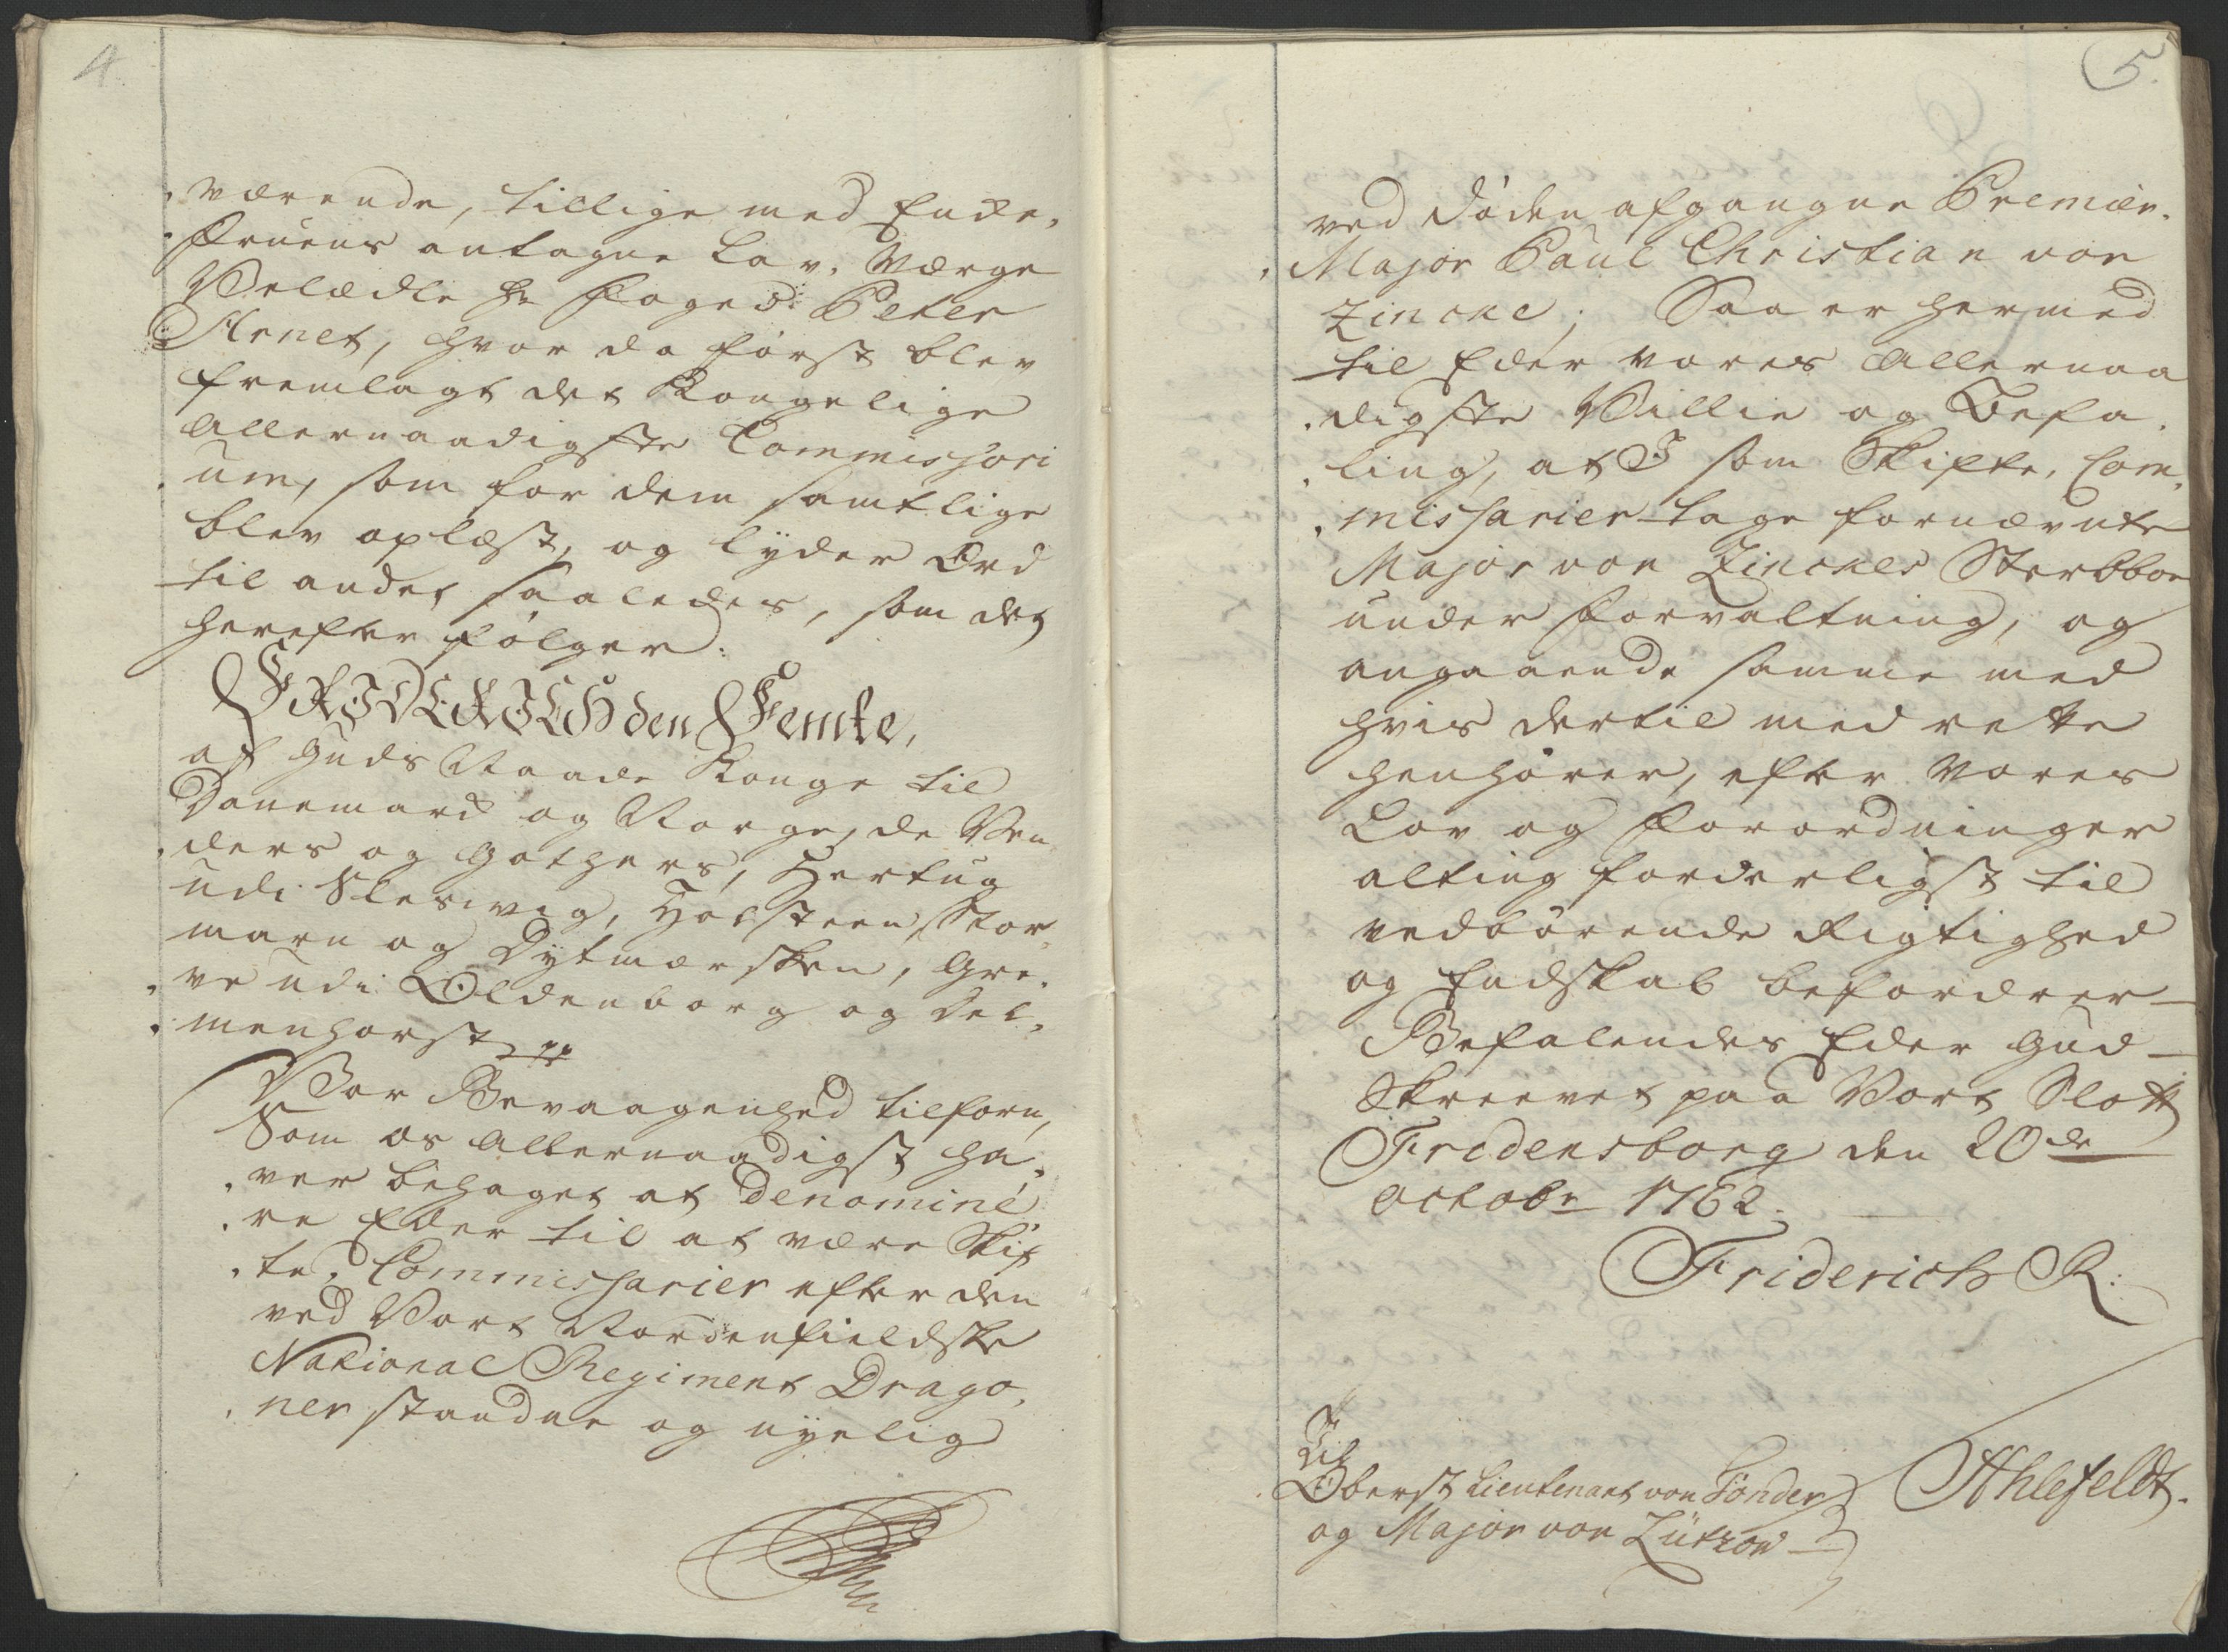 4
værende, tillige med Enke,
Fruens antagne Lav, Værge
Velædle Hr Foged: Peter
Arnet, hvor da først blev
fremlagt det Kongelige
Allernaadigste Commissori
um, som for dem samtlige
blev oplæst, og lÿder Ord
til andet saaledes, som det
herefter følger:
FRIDERICH den Femte,
af Guds Naade Konge til
Danemark og Norge, de Ven
ders og Gothers, Hertug
udi Slesvig, Holsteen, Stor
marn og Dytmersken, Gre,
ve udi Oldenborg og Del,
menhorst
Vor Bevaagenhed tilforn,
Som os Allernaadigst ha,
ver behaget at denomine
re Eder til at være Skif
te, Commissarier efter den
ved Vort Nordenfieldske
National Regiment Drago,
ner standne og nÿelig
5.
ved Døden afgangne Premier,
Major Paul Christian von
Zincke; Saa er hermed
til Eder vores Allernaa
digste Villie og Befa,
ling, at I som Skifte, Com,
missarier tage fornævnte
Major von Zinckes Sterbboe
under Forvaltning, og
angaaende samme med
hvis dertil med rette
henhører, efter Vores
Lov og Forordninger
alting forderligst til
vedbørende Rigtighed
og Endskab befordrer
Befalendes Eder Gud
Skrevet paa Vort Slott
Fredensborg den 20de
Octobr 1762.
Friderich R:
Til
Oberst Lieutenant von Tönder
og Major von Lützow
Ahlefeldt.